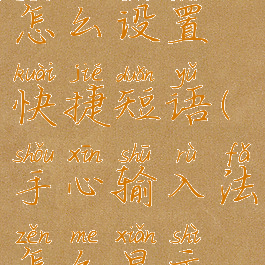 怎么设置
kuài jié duǎn yǔ
快捷短语(
shǒu xīn shū rù fǎ
手心输入法
zěn me xiǎn shì
怎么显示